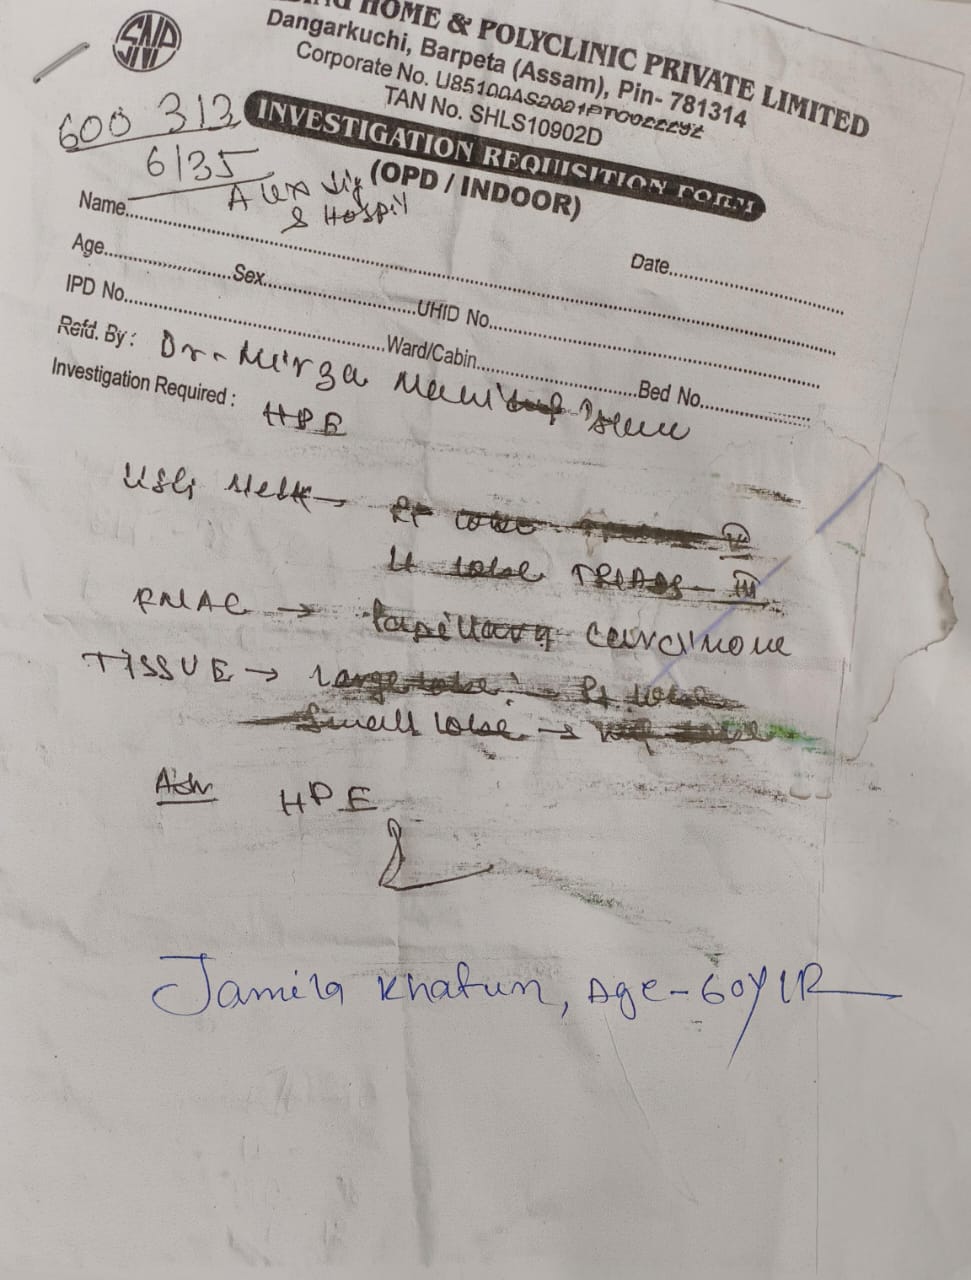 SNP
HOME & POLYCLINIC PRIVATE LIMITED
Dangarkuchi, Barpeta (Assam), Pin- 781314
Corporate No. U85100AS2021PTC022292
TAN No. SHLS10902D
INVESTIGATION REQUISITION FORM
(OPD / INDOOR)
600 313
6135
& Hospil
Name
Date
Age
Sex
UHID No.
IPD No.
Ward/Cabin
Bed No.
Refd. By : Dr. Mirza
Investigation Required :
HPE
USG Neck → Rt lobe IV
Lt lobe TRIADS - III
FNAC → Papillary carcinoma
TISSUE → Large lobe → Rt lobe
Small lobe →
Adv
HPE
Jamila Khatun, Age - 60Y